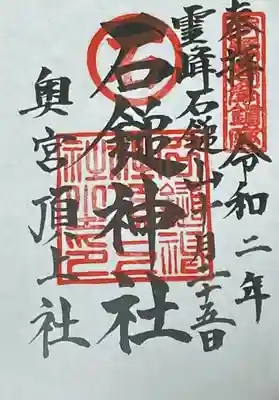 奉拝
令和二年
霊峰石鎚山
月二十五日
石鎚神社
奥宮頂上社